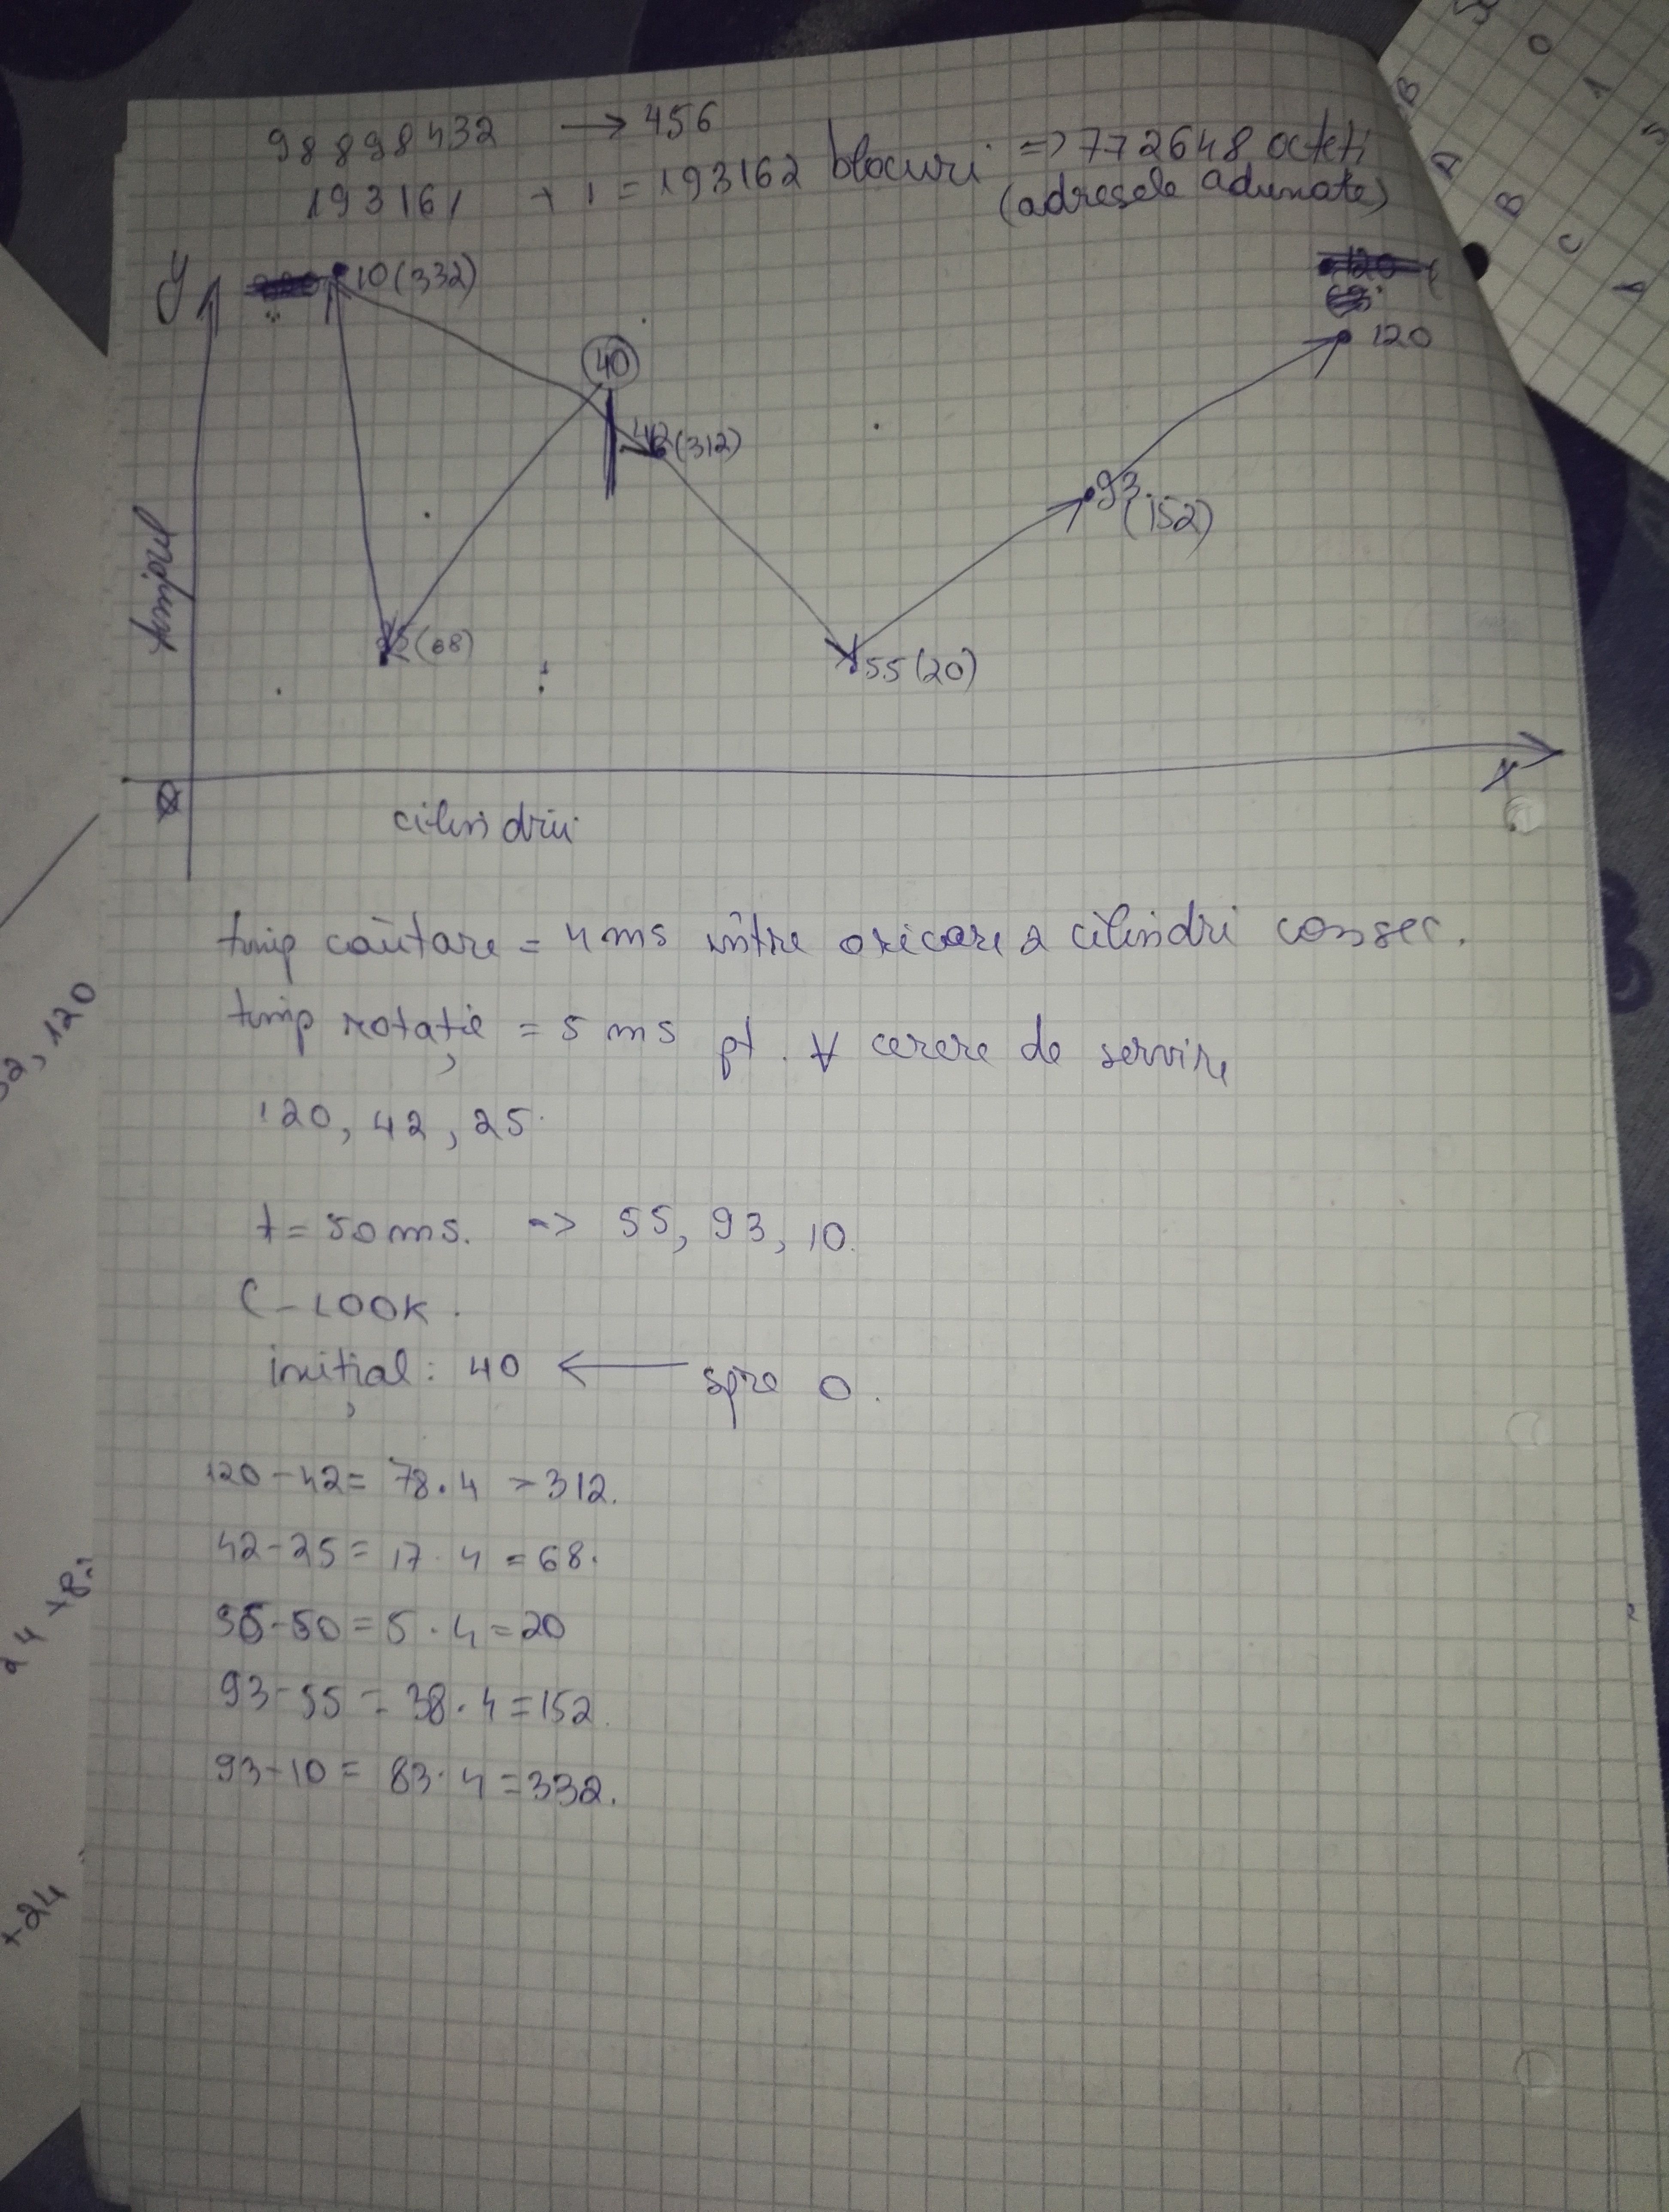 98898432 → 456
193161 + 1 = 193162 blocuri => 772648 octeti
(adresele adunate)
y
10(332)
40
120
42(312)
93
(152)
timpul
(68)
55(20)
x
cilindrii
timp căutare = 4 ms între oricare 2 cilindri consec.
timp rotație = 5 ms pt. ∀ cerere de servire
120, 42, 25
t = 50 ms. => 55, 93, 10.
C-LOOK.
inițial: 40 ← spre 0.
120-42 = 78.4 = 312.
42-25 = 17.4 = 68.
55-50 = 5.4 = 20
93-55 = 38.4 = 152.
93-10 = 83.4 = 332.
120
+24